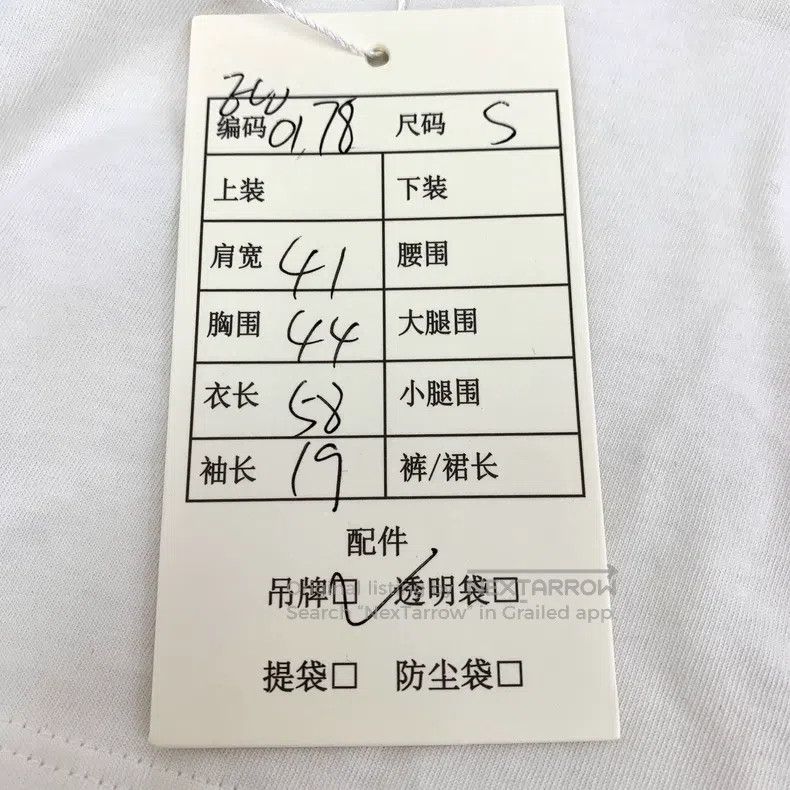 编码 01.78 尺码 S
上装 下装
肩宽 41 腰围
胸围 44 大腿围
衣长 58 小腿围
袖长 19 裤/裙长
配件
吊牌☑ 透明袋□
Original listing by NEXTARROW
Search "NexTarrow" in Grailed app.
提袋□ 防尘袋□